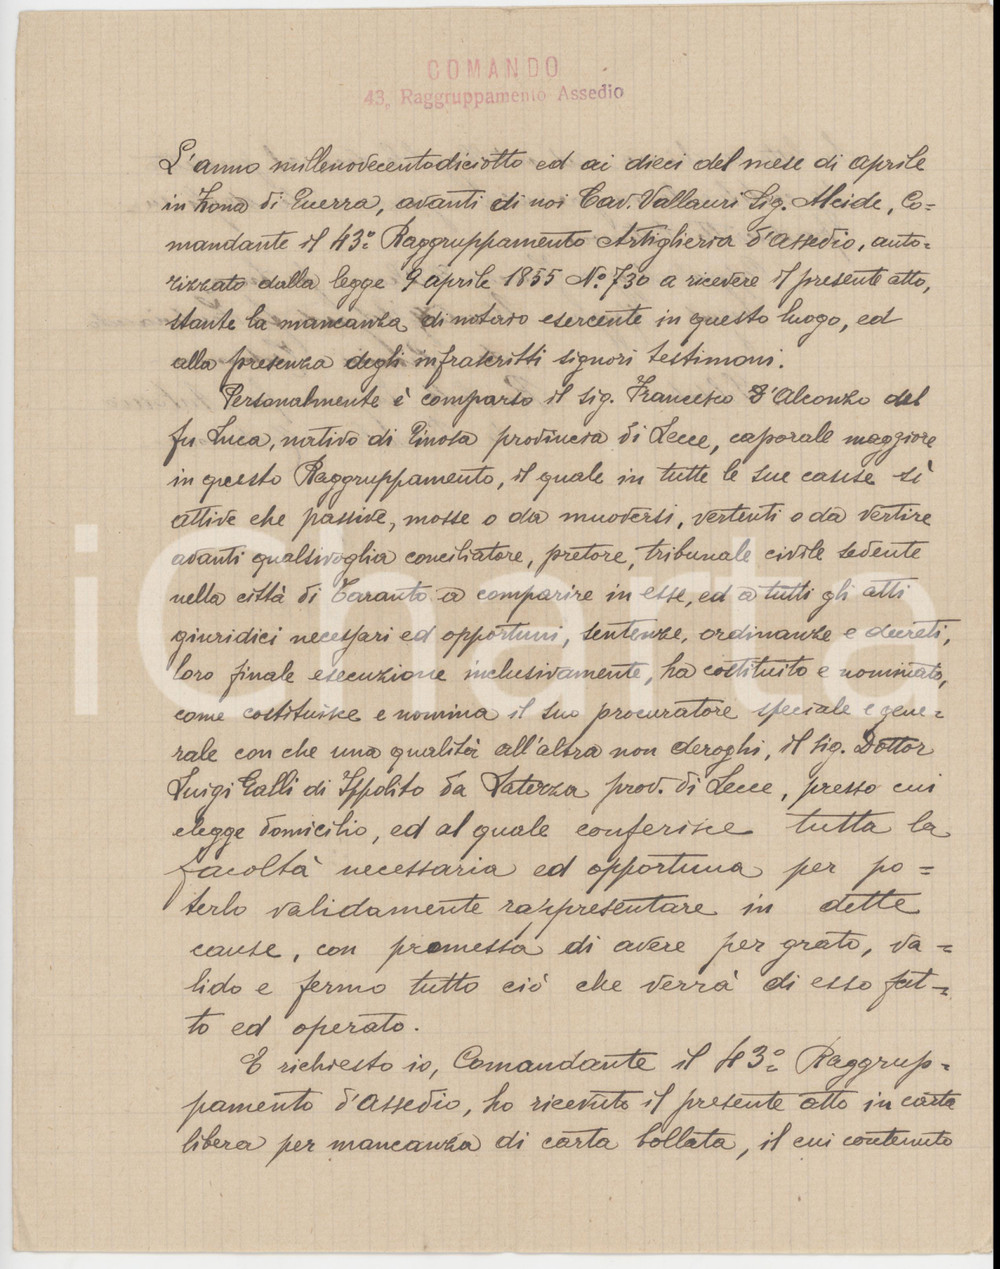 COMANDO
43° Raggruppamento Assedio
L'anno millenovecentodiciotto ed ai dieci del mese di Aprile
in Zona di Guerra, avanti di noi Cav. Vallauri Sig. Alcide, Co=
mandante il 43° Raggruppamento Artiglieria d'assedio, auto=
rizzato dalla legge 9 aprile 1855 N° 730 a ricevere il presente atto,
stante la mancanza di notaro esercente in questo luogo, ed
alla presenza degli infrascritti signori testimoni.
Personalmente è comparso il sig. Francesco D'Alconzo del
fu Luca, nativo di Ginosa provincia di Lecce, caporale maggiore
in questo Raggruppamento, il quale in tutte le sue cause sì
attive che passive, mosse o da muoversi, vertenti o da vertire
avanti qualsivoglia conciliatore, pretore, tribunale civile sedente
nella città di Taranto a comparire in esse, ed a tutti gli atti
giuridici necessari ed opportuni, sentenze, ordinanze e decreti,
loro finale esecuzione inclusivamente, ha costituito e nominato,
come costituisce e nomina il suo procuratore speciale e gene=
rale con che una qualità all'altra non deroghi, il sig. Dottor
Luigi Galli di Ippolito da Laterza prov. di Lecce, presso cui
elegge domicilio, ed al quale conferisce tutta la
facoltà necessaria ed opportuna per po=
terlo validamente rappresentare in dette
cause, con promessa di avere per grato, va=
lido e fermo tutto ciò che verrà di esso fat=
to ed operato.
E richiesto io, Comandante il 43° Raggrup=
pamento d'assedio, ho ricevuto il presente atto in carta
libera per mancanza di carta bollata, il cui contenuto
iCharta